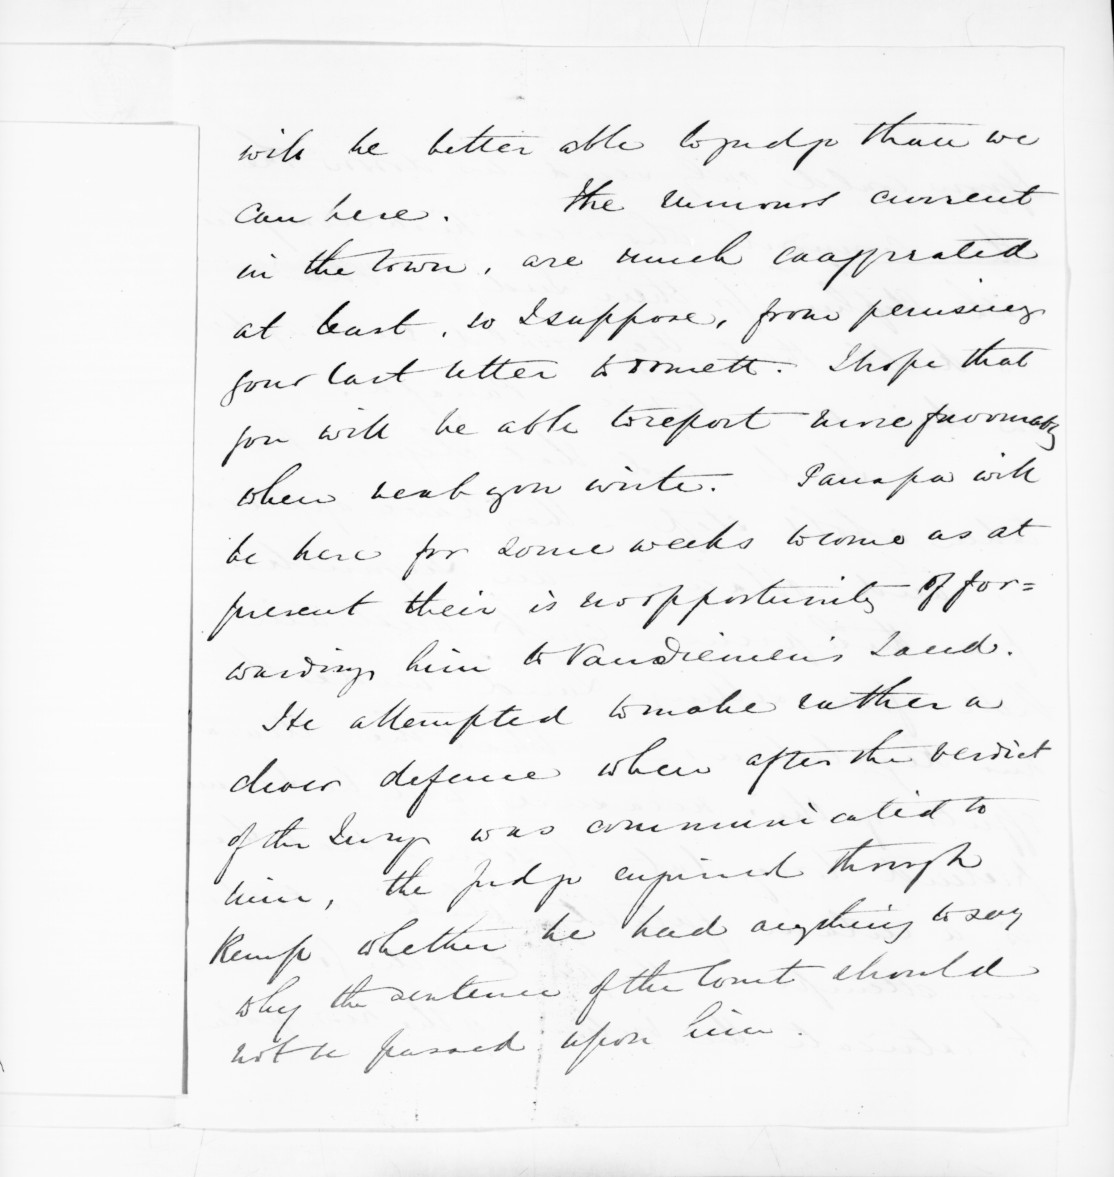 will be better able to judge than we
can here. The rumours current
in the town, are much exaggerated
at least, so I suppose, from perusing
your last letter to
I hope that
you will be able to report more favourably
when next you write. Panapa will
be here for some weeks to come as at
present their is no opportunity of for=
warding him to VanDiemen's Land.
He attempted to make rather a
clever defence when after the verdict
of the Jury was communicated to
him, the Judge enquired through
Kemp whether he had anything to say
why the sentence of the Court should
not be passed upon him.